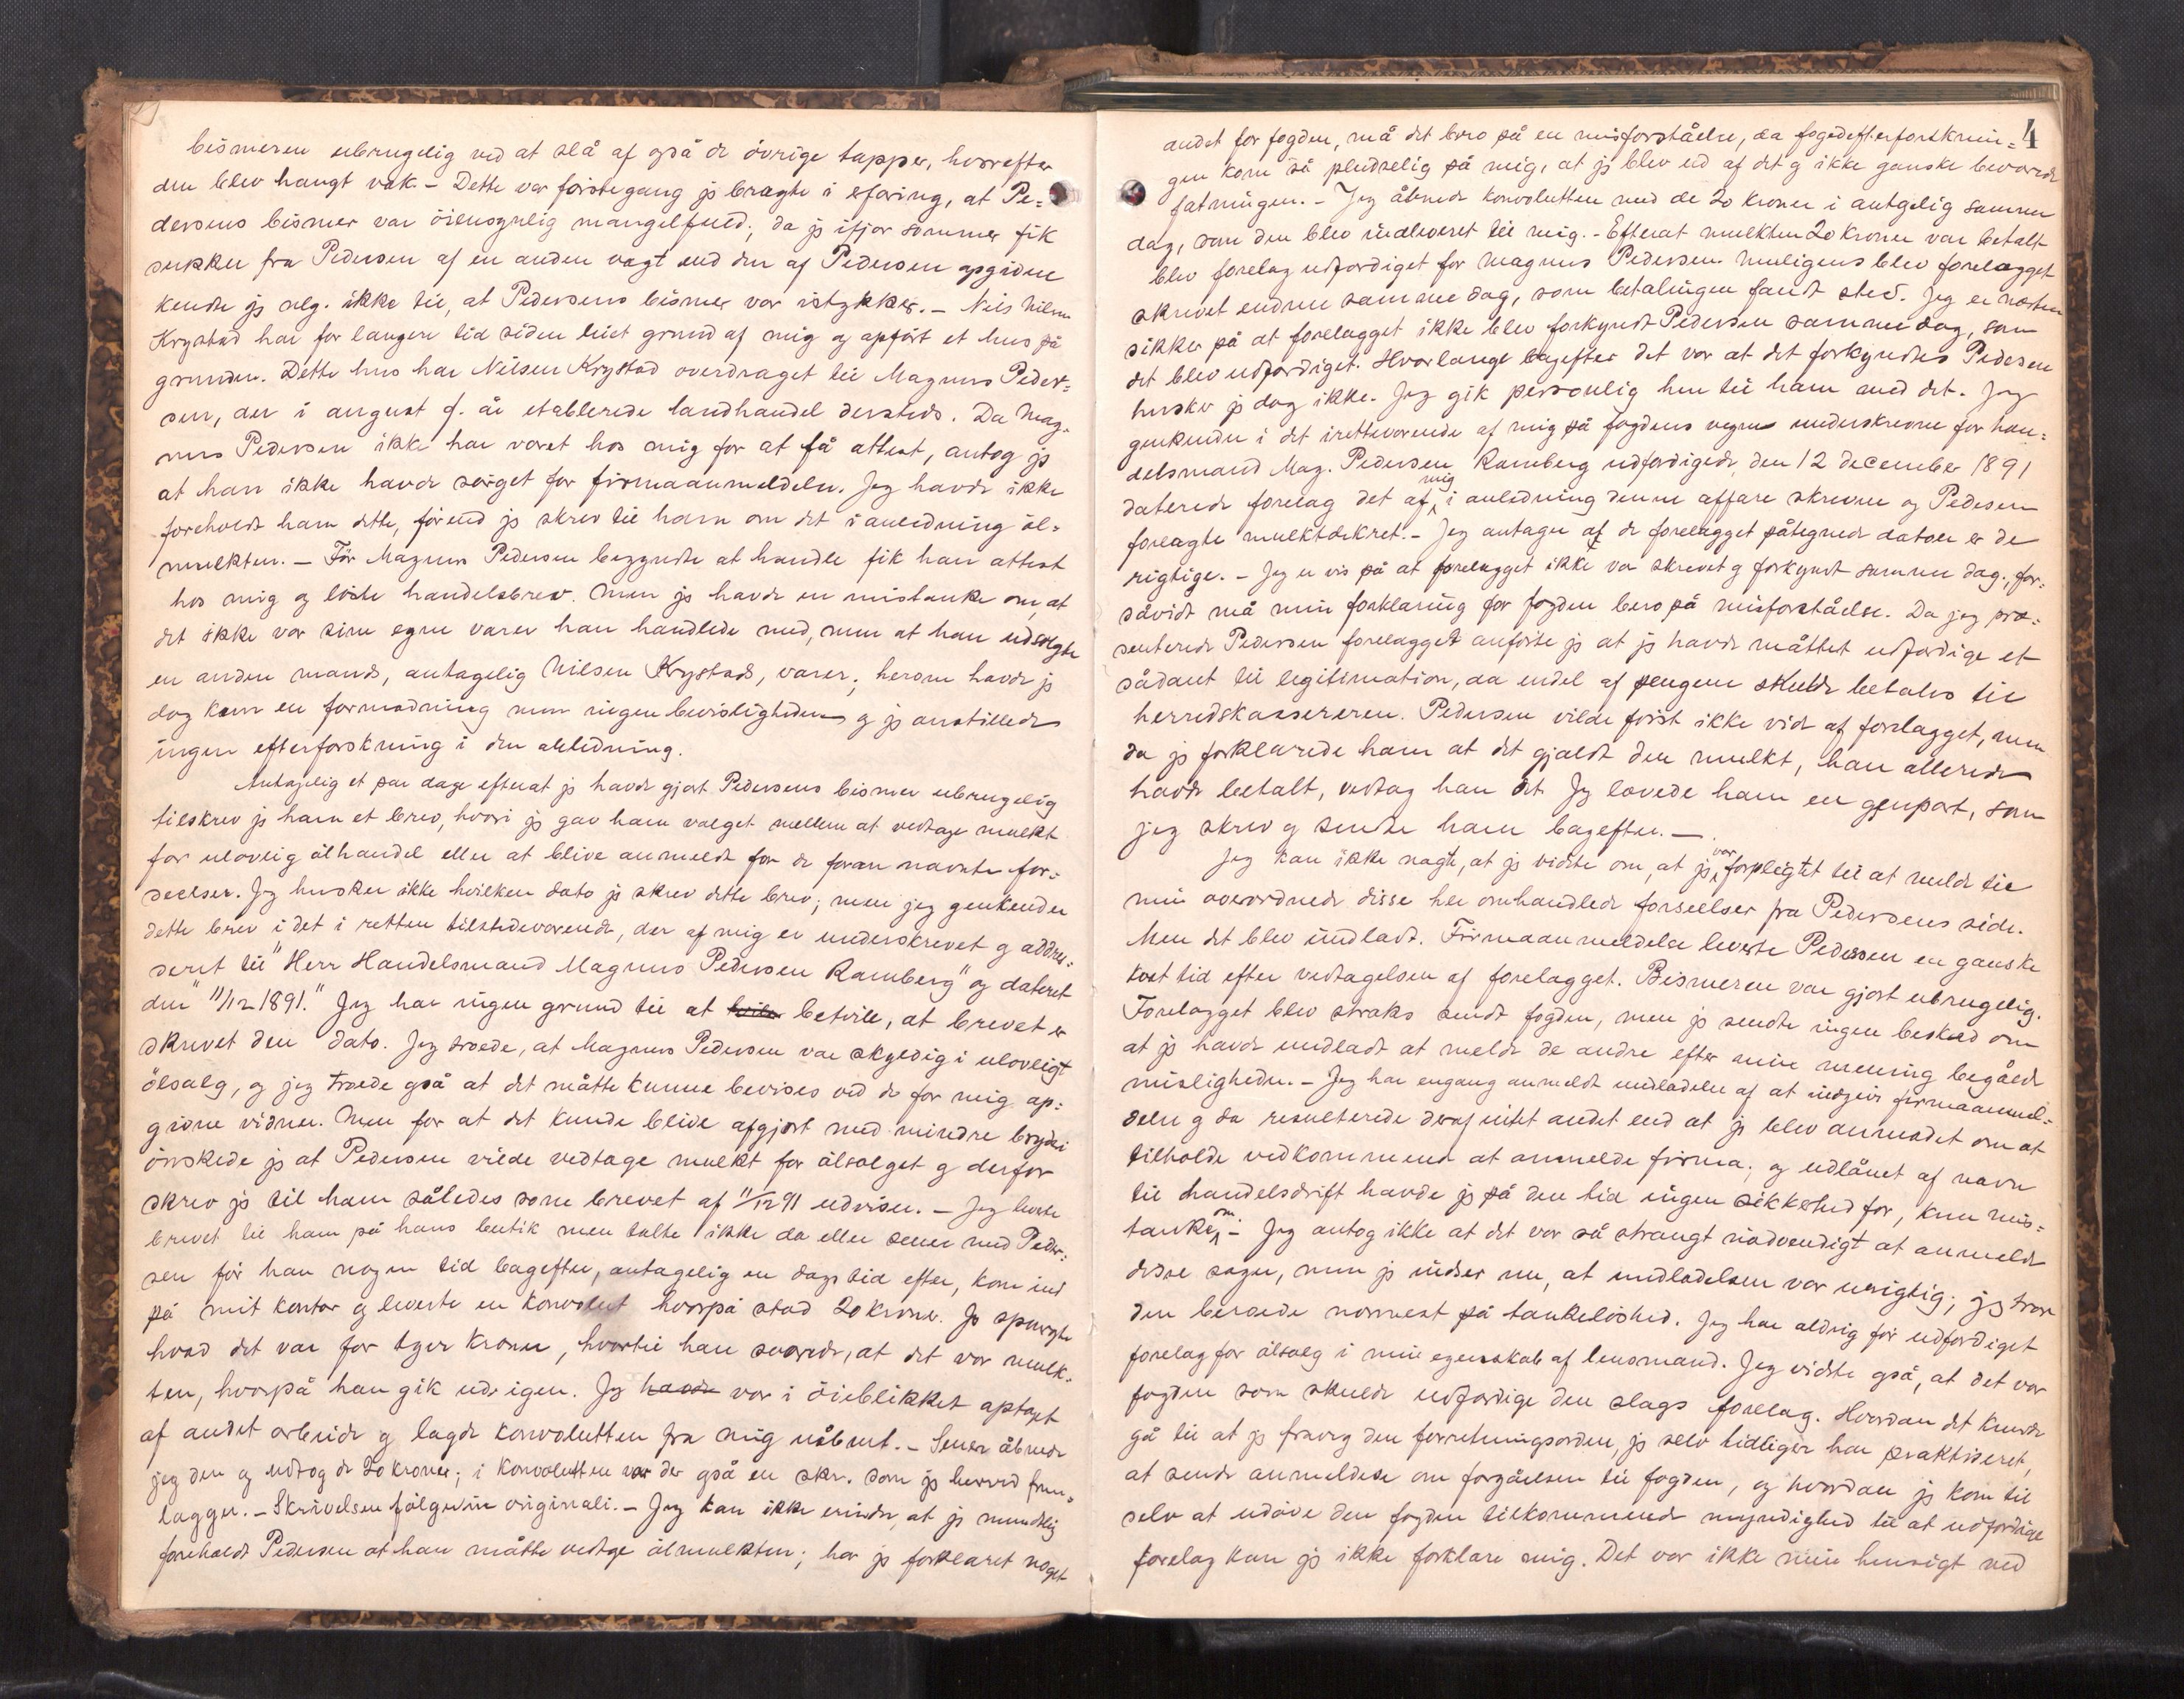 bismeren ubrugelig ved at slå af også de övrige tapper, hvorefter
den blev hængt væk. – Dette var förstegang jg bragte i erfaring, at Pe=
dersens bismer var öiensynlig mangelfuld; da jg ifjor sommer fik
sukker fra Pedersen af en anden vægt end den af Pedersen opgivne
kendte jg slg. ikke til, at Pedersens bismer var istykker. – Nils Nilsen
Krystad har for længere tid siden leiet grund af mig og opfört et hus på
grunden. Dette hus har Nilsen Krystad overdraget til Magnus Peder=
sen, der i august f. år etablerede landhandel dersteds. Da Mag=
nus Pedersen ikke har været hos mig for at få attest, antog jg
at han ikke havde sörget for firmaanmeldelse. Jeg havde ikke
foreholdt ham dette, förend jg skrev til ham om det i anledning öl=
mulkten. – För Magnus Pedersen begyndte at handle fik han attest
hos mig og löste handelsbrev. Men jg havde en mistanke om, at
det ikke var sine egne varer han handlede med, men at han udsolgte
en anden mands, antagelig Nilsen Krystads, varer; herom havde jg
dog kun en formodning men ingen bevisligheder og jg anstillede
ingen efterforskning i den anledning.
Antagelig et par dage efterat jg havde gjort Pedersens bismer ubrugelig
tilskrev jg ham et brev, hvori jg gav ham valget mellem at vedtage mulkt
for ulovlig ölhandel eller at blive anmeldt for de foran nævnte for=
seelser. Jeg husker ikke hvilken dato jg skrev dette brev; men jeg genkender
dette brev i det i retten tilstedeværende, der af mig er underskrevet g addres=
seret til "Herr Handelsmand Magnus Pedersen Ramberg" og dateret
den "11/12 1891." Jeg har ingen grund til at betvile, at brevet er
skrevet den dato. Jeg troede, at Magnus Pedersen var skyldig i ulovligt
ölsalg, og jeg troede også at det måtte kunne bevises ved de for mig op=
givne vidner. Men for at det kunde blive afgjort med mindre bryderi
önskede jg at Pedersen vilde vedtage mulkt for ölsalget g derfor
skrev jg til ham således som brevet af 11/12 91 udviser. – Jeg leverte
brevet til ham på hans butik men talte ikke da eller senere med Peder=
sen för han nogen tid bagefter, antagelig en dags tid efter, kom ind
på mit kontor g leverte en konvolut hvorpå stod 20 kroner. Jg spurgte
hvad det var for tyve kroner, hvortil han svarede, at det var mulk=
ten, hvorpå han gik ud igen. Jg havde var i öieblikket optaget
af andet arbeide g lagde konvolutten fra mig uåbnet. – Senere åbnede
jeg den og udtog de 20 kroner; i konvolutten var der også en skr. som jg herved frem=
lægger. – Skrivelsen fölger in originali. – Jeg kan ikke erindre, at jg mundtlig
foreholdt Pedersen at han måtte vedtge ölmulkten; har jg forklaret noget
4
andet for fogden, må det bero på en misforståelse, da fogedefterforsknin=
gen kom så pludselig på mig, at jg blev ud af det g ikke ganske bevarede
fatningen. – Jeg åbnede konvolutten med de 20 kroner i antgelig samme
dag, som den blev indleveret til mig. – Efterat mulkten 20 kroner var betalt
blev forelæg udfærdiget for Magnus Pedersen. Muligens blev forelægget
skrevet endnu samme dag, som betalingen fandt sted. Jeg er næsten
sikker på at forelægget ikke blev forkyndt Pedersen samme dag, som
det blev udfærdiget. Hvorlænge bagefter det var at det forkyndtes Pedersen
husker jg dog ikke. Jeg gik personlig hen til ham med det. Jeg
genkender i det iretteværende af mig på fogdens vegne underskrevne for han=
delsmand Mag. Pedersen Ramberg udfærdigede, den 12 december 1891
daterede forelæg det af mig i anledning denne affære skrevne og Pedersen
forelagte mulktdekret. – Jeg antager at de forelægget påtegnede datoer er de
rigtige. – Jeg er vis på at forelægget ikke var skrevet g forkyndt samme dag; for=
såvidt må min forklaring for fogden bero på misforståelse. Da jeg præ=
senterede Pedersen forelægget anförte jg at jg havde måttet udfærdige et
sådant til legitimation, da endel af pengene skulde betales til
herredskassereren. Pedersen vilde först ikke vide af forelægget, men
da jg forklarede ham at det gjaldt den mulkt, han allerede
havde betalt, vedtog han det. Jg lovede ham en genpart, som
jeg skrev g sendte ham bagefter. –
Jeg kan ikke nægte, at jg vidste om, at jg var forpligtet til at melde til
min overordnede disse her omhandlede forseelser fra Pedersens side.
Men det blev undladt. Firmaanmeldelse leverte Pedersen en ganske
kort tid efter vedtagelsen af forelægget. Bismeren var gjort ubrugelig.
Forelægget blev straks sendt fogden, men jg sendte ingen besked om
at jg havde undladt at melde de andre efter min mening begåede
misligheder. – Jeg har engang anmeldt undladelse af at indgive firmaanmel=
delse g da resulterede deraf intet andet end at jg blev anmodet om at
tilholde vedkommende at anmelde firma; og udlånet af navn
til handelsdrift havde jg på den tid ingen sikkerhed for, kun mis=
tanke om. – Jeg antog ikke at det var så strængt nödvendigt at anmelde
disse sager, men jg indser nu, at undladelsen var urigtig; jg tror
den beroede nærmest på tankelöshed. Jeg har aldrig för udfærdiget
forelæg for ölsalg i min egenskab af lensmand. Jeg vidste også, at det var
fogden som skulde udfærdige den slags forelæg. Hvordan det kunde
gå til at jg fraveg den forretningsorden, jg selv tidligere har praktiseret,
at sende anmeldelse om forgåelsen til fogden, og hvordan jg kom til
selv at udöve den fogden tilkommende myndighed til at udfærdige
forelæg kan jg ikke forklare mig. Det var ikke min hensigt ved